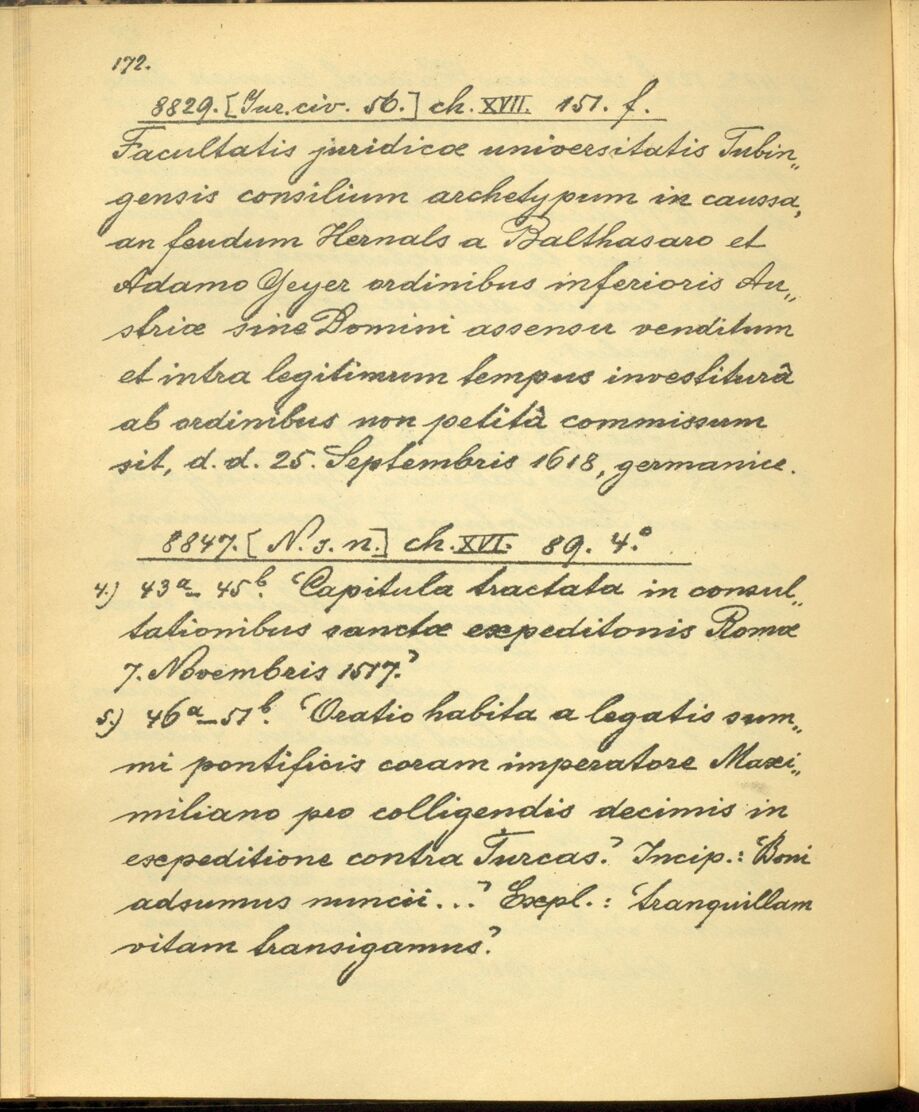 172.
8829. [Jur. civ. 56.] ch. XVII. 151. f.
Facultatis juridicæ universitatis Tubin„
gensis consilium archetypum in caussa,
an feudum Hernals a Balthasaro et
Adamo Geyer ordinibus inferioris Au„
striæ sine Domini assensu venditum
et intra legitimum tempus investiturâ
ab ordinibus non petitâ commissum
sit, d. d. 25. Septembris 1618, germanice.
8847. [N. s. n.] ch. XVI. 89. 4.°
4.) 43a_ 45b. 'Capitula tractata in consul„
tationibus sanctæ expeditonis Romæ
7. Novembris 1517.'
5.) 46a_51b. 'Oratio habita a legatis sum„
mi pontificis coram imperatore Maxi„
miliano pro colligendis decimis in
expeditione contra Turcas.' Incip.: 'Boni
adsumus nuncii...' Expl.: 'tranquillam
vitam transigamus.'